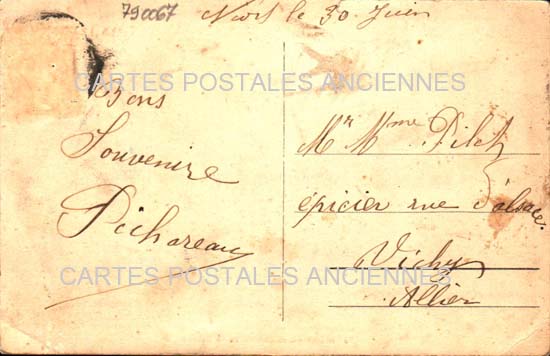 790067
Niort le 30 Juin
CARTES POSTALES ANCIENNES
Bons
Souvenire
Pichareau
Mr Mme Pilot
épicier rue d'alsace.
Vichy
Allier
CARTES POSTALES ANCIENNES